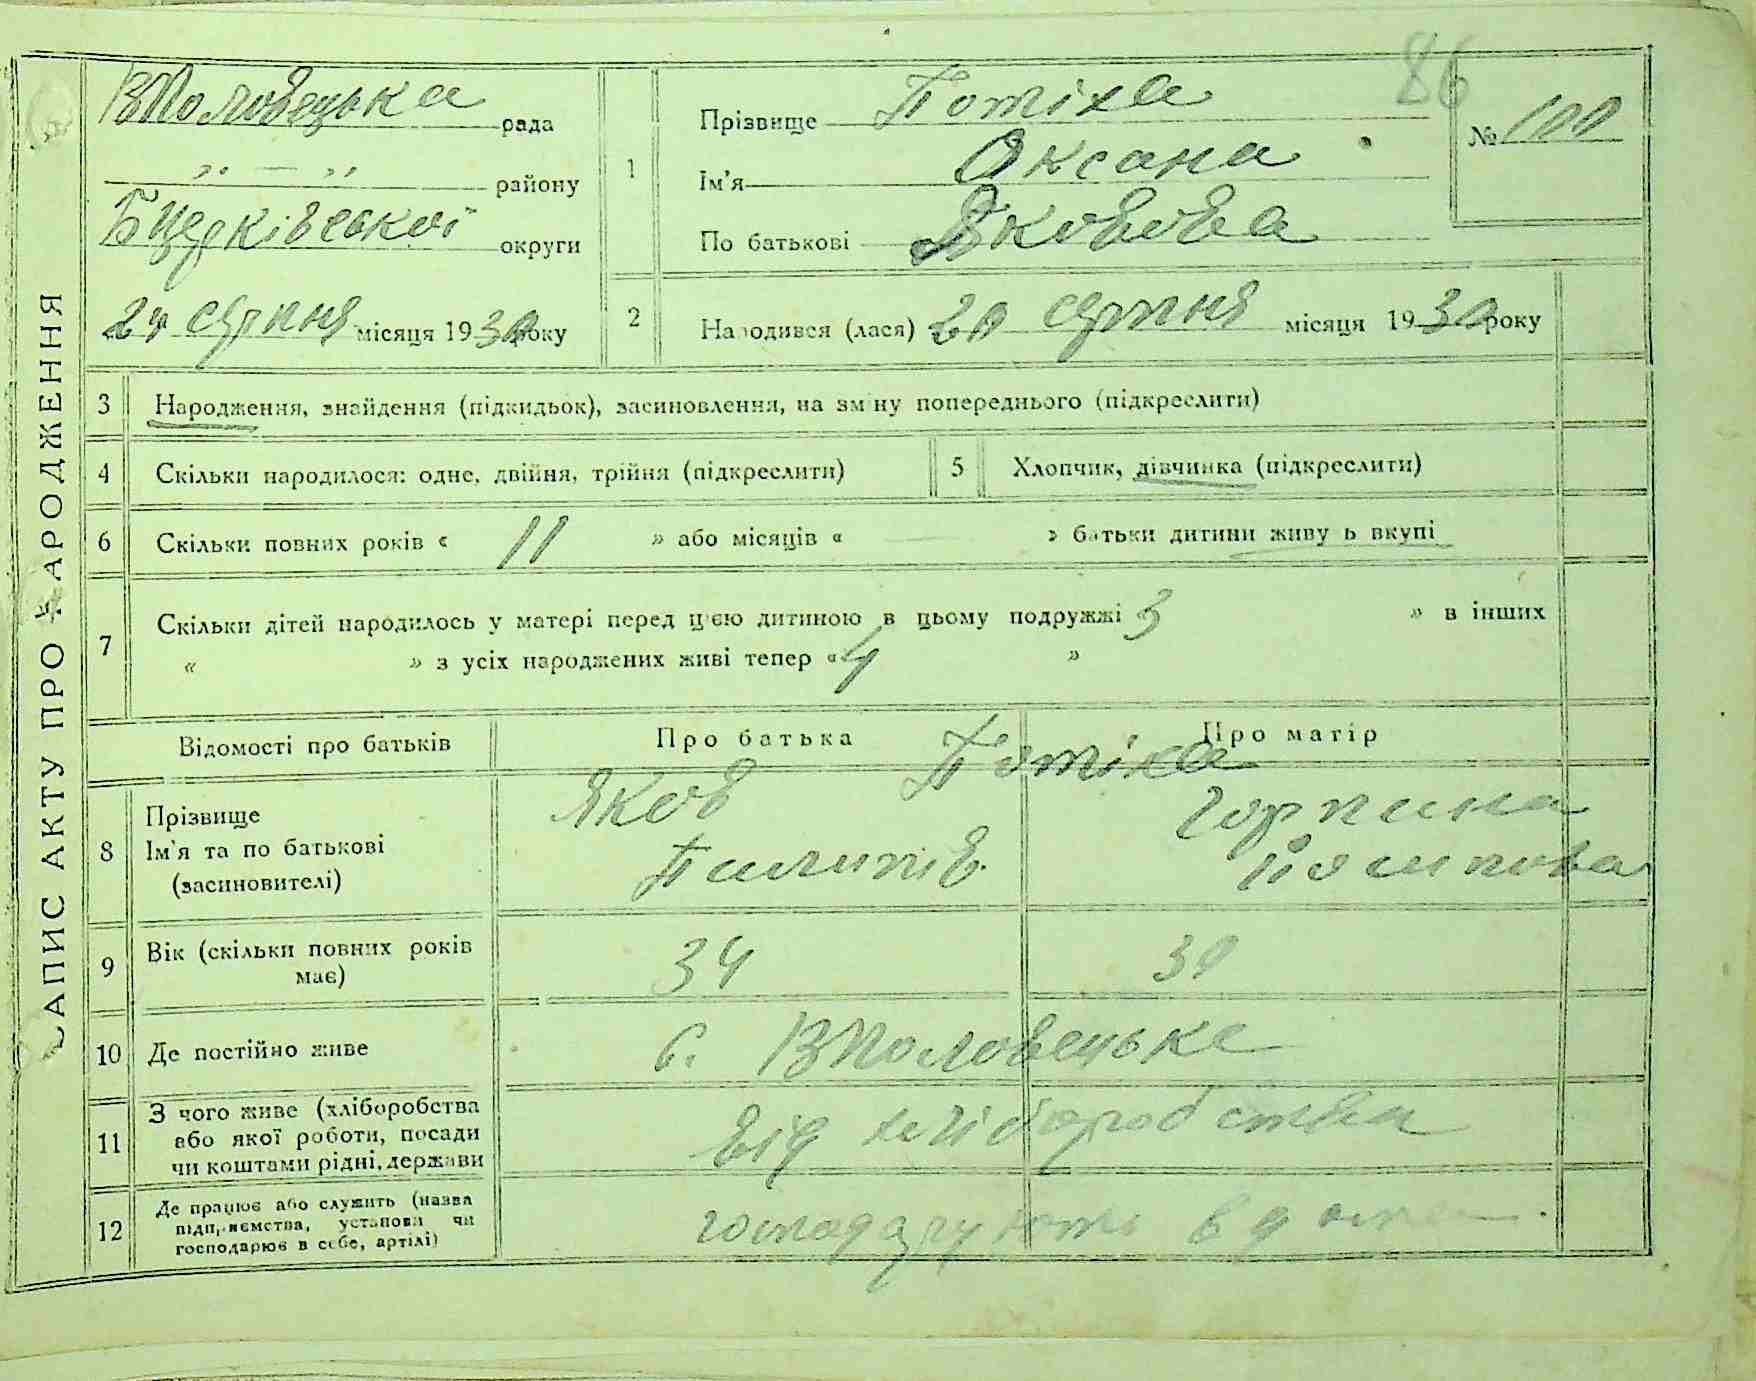 86
ВПоловецька рада
„ — „ району
Бцерківської округи
24 серпня місяця 1930 року
1
Прізвище Потіха
Ім'я Оксана
По батькові Яковова
№ 100
2
Народився (лася) 20 серпня місяця 1930 року
ЗАПИС АКТУ ПРО НАРОДЖЕННЯ
3 Народження, знайдення (підкидьок), засиновлення, на зміну попереднього (підкреслити)
4 Скільки народилося: одне, двійня, трійня (підкреслити)
5 Хлопчик, дівчинка (підкреслити)
6 Скільки повних років « 11 » або місяців « — » батьки дитини живуть вкупі
7 Скільки дітей народилось у матері перед цією дитиною в цьому подружжі 3 » в інших
« » з усіх народжених живі тепер « 4 »
Відомості про батьків
Про батька
Про матір
8 Прізвище
Ім'я та по батькові
(засиновителі)
Потіха
Яков
Пилипів
Горпина
Йосипова
9 Вік (скільки повних років
має)
34
30
10 Де постійно живе
с. ВПоловецьке
11 З чого живе (хліборобства
або якої роботи, посади
чи коштами рідні, держави
від хліборобства
12 Де працює або служить (назва
підприємства, установи чи
господарює в себе, артілі)
господарують вдома